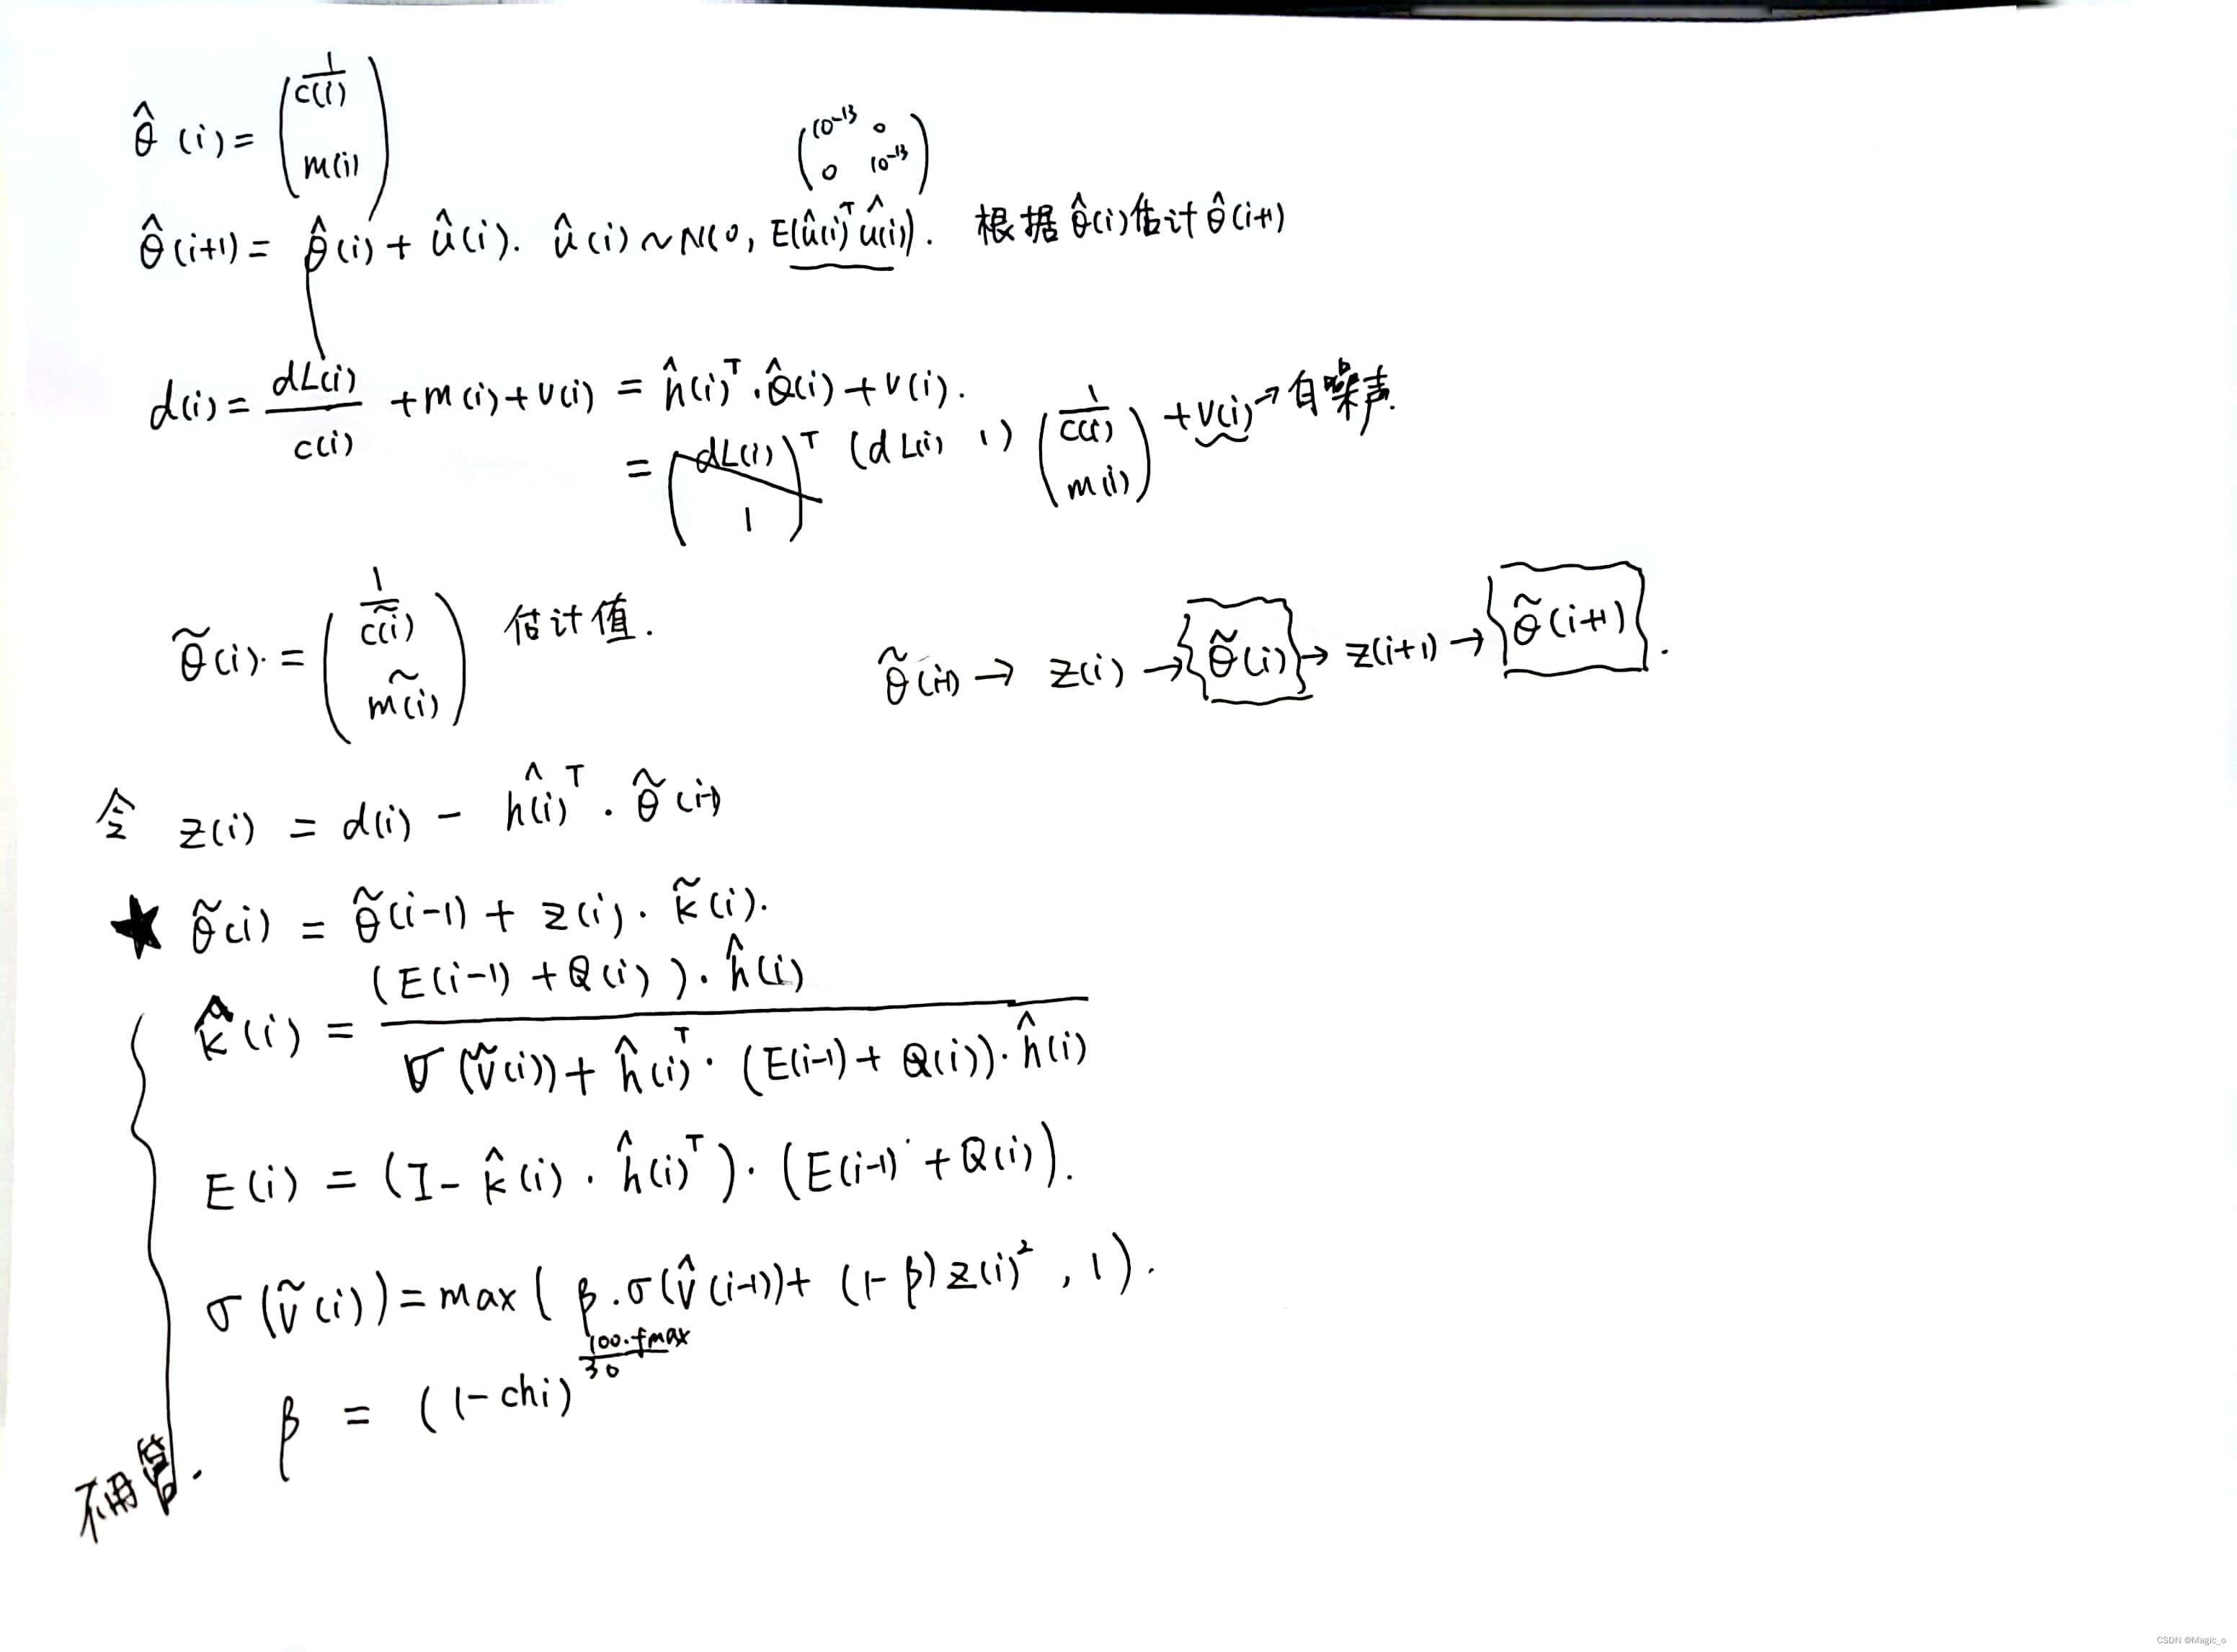 θ̂(i) = ( 1/c(i) m(i) )
( 10⁻¹³ 0 0 10⁻¹³ )
θ̂(i+1) = θ̂(i) + û(i). û(i) ~ N(0, E(û(i)ᵀ û(i)). 根据 θ̂(i) 估计 θ̂(i+1)
d(i) = dL(i)/c(i) + m(i) + v(i) = ĥ(i)ᵀ · θ̂(i) + v(i).
= ( dL(i) 1 )ᵀ (dL(i) 1) ( 1/c(i) m(i) ) + v(i) → 白噪声.
θ̃(i). = ( 1/c̃(i) m̃(i) ) 估计值.
θ̃(i-1) → z(i) → θ̃(i) → z(i+1) → θ̃(i+1) .
令 z(i) = d(i) - ĥ(i)ᵀ · θ̃(i-1)
★ θ̃(i) = θ̃(i-1) + z(i) · k̃(i).
k̂(i) = (E(i-1) + Q(i)) · ĥ(i) / σ(ṽ(i)) + ĥ(i)ᵀ · (E(i-1) + Q(i)) · ĥ(i)
E(i) = (I - k̂(i) · ĥ(i)ᵀ) · (E(i-1) + Q(i)).
σ(ṽ(i)) = max( β · σ(v̂(i-1)) + (1-β) z(i)², 1).
β = (1-chi)^(100·fmax/30)
不用管.
CSDN @Magic_o